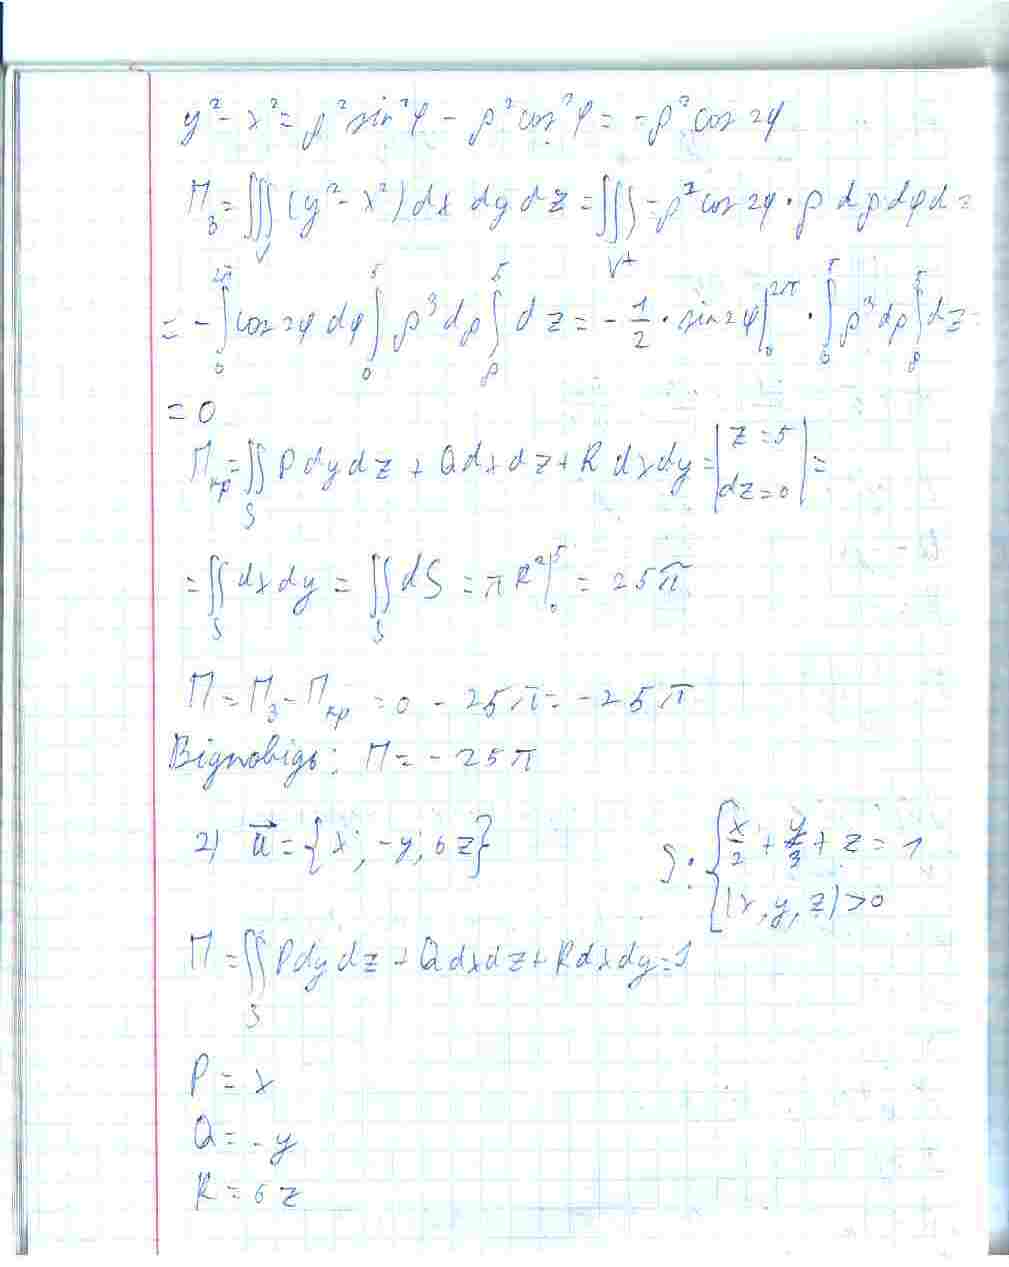 y² - x² = ρ² sin²φ - ρ² cos²φ = -ρ² cos 2φ
П₃ = ∭ᵥ (y² - x²) dx dy dz = ∭_V⁺ -ρ² cos 2φ · ρ dρ dφ dz =
= -∫₀^2π cos 2φ dφ ∫₀⁵ ρ³ dρ ∫ᵨ⁵ dz = -1/2 · sin 2φ |₀^2π · ∫₀⁵ ρ³ dρ ∫ᵨ⁵ dz =
= 0
П_кр = ∬_S P dy dz + Q dx dz + R dx dy = | z = 5 dz = 0 | =
= ∬_S dx dy = ∬_S dS = π R² |₀⁵ = 25π
П = П₃ - П_кр = 0 - 25π = -25π
Відповідь: П = -25π
2) u⃗ = {x; -y; 6z} S: { x/2 + y/3 + z = 1
(x, y, z) > 0
П = ∬_S P dy dz + Q dx dz + R dx dy = 1
P = x
Q = -y
R = 6z